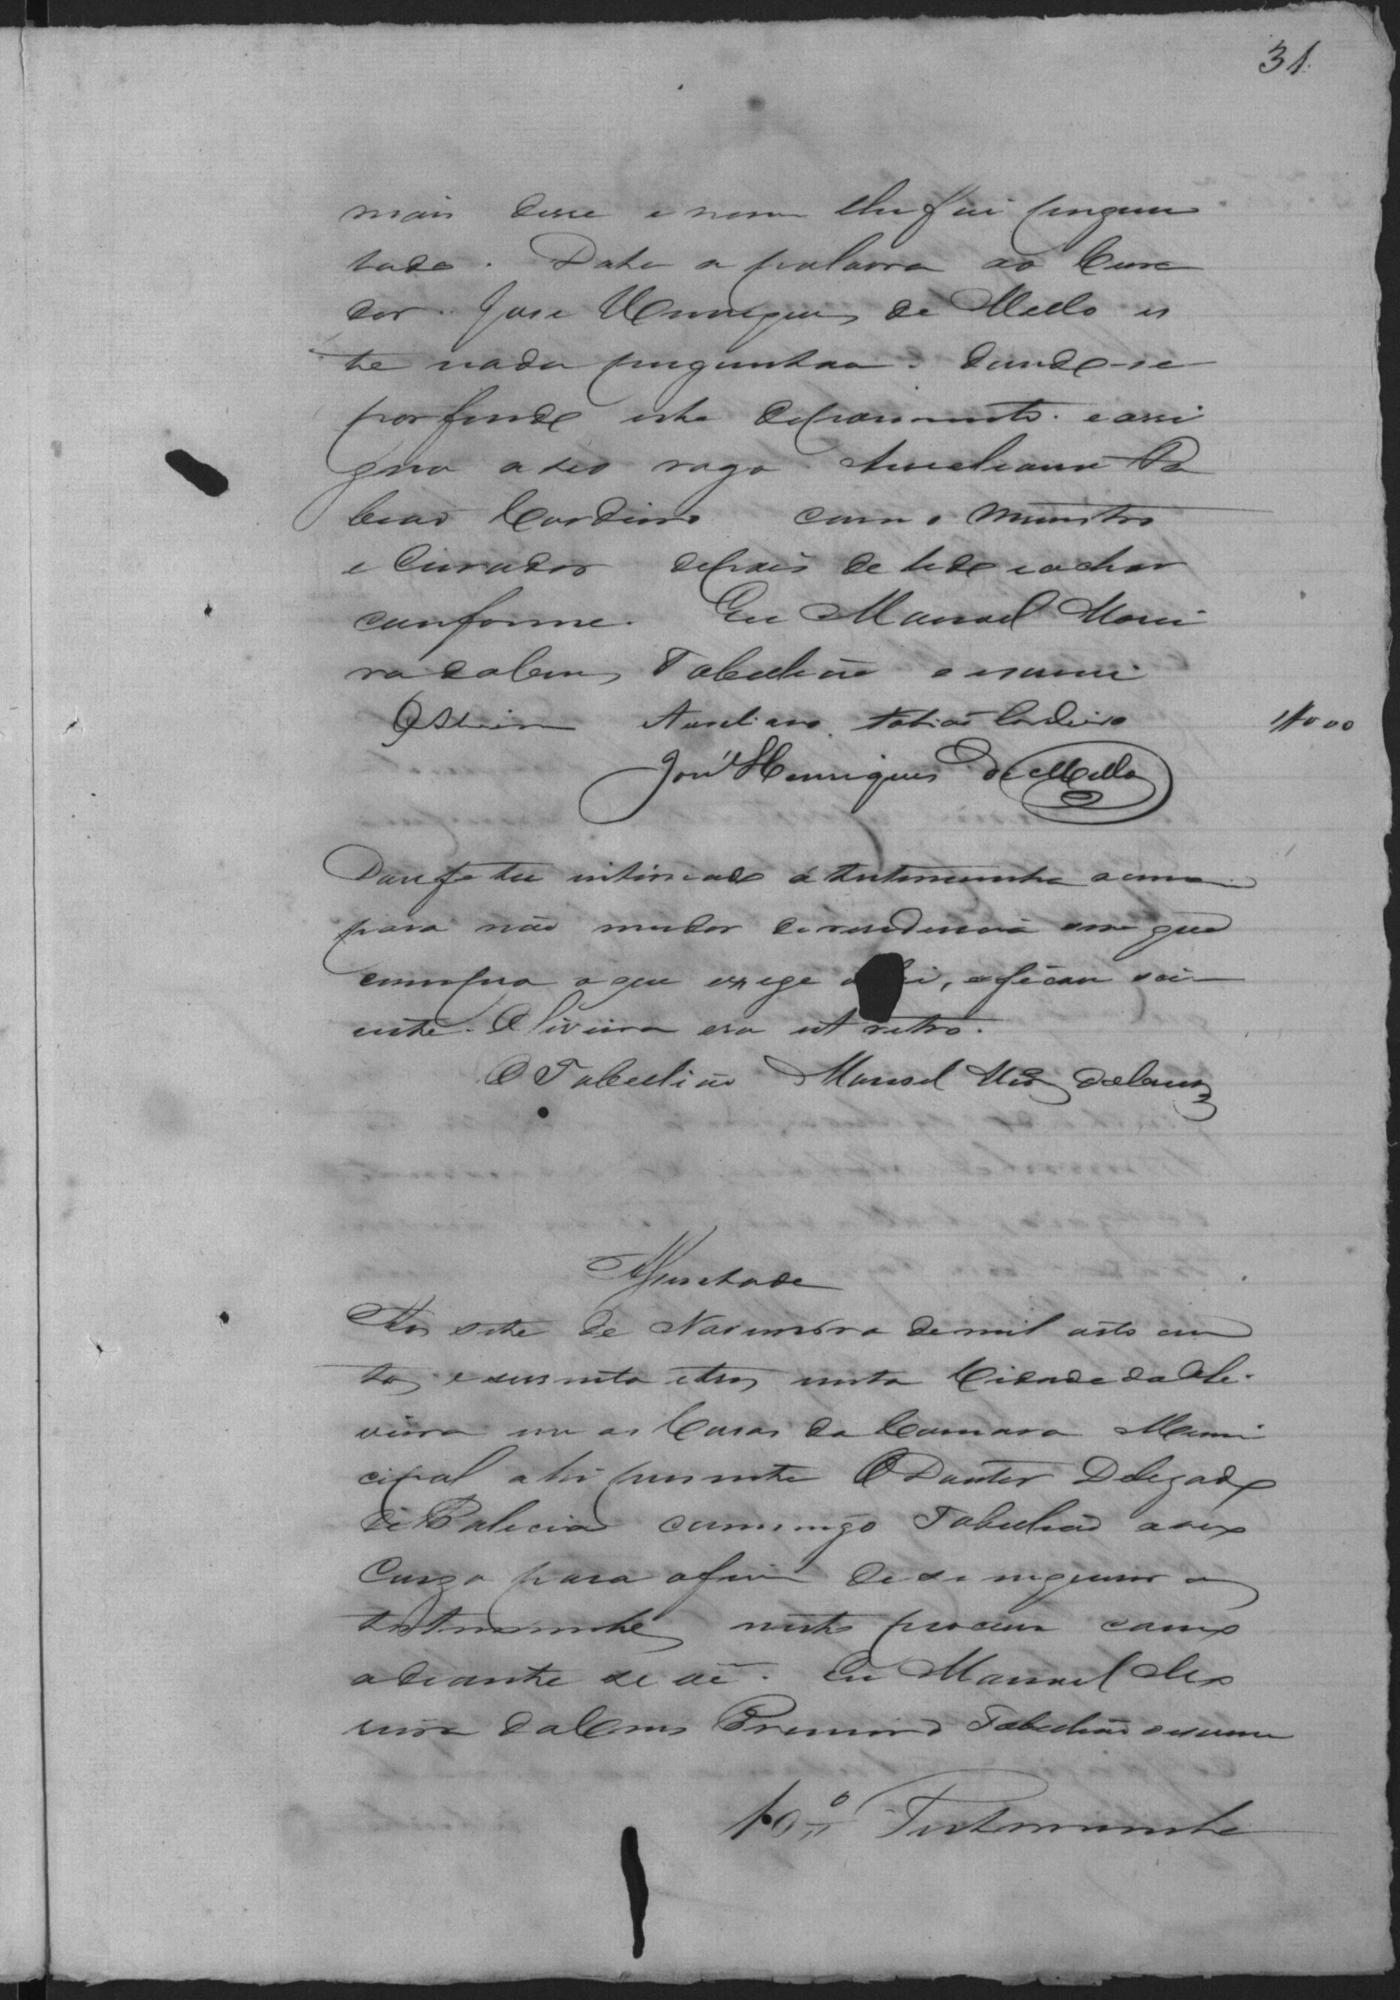 31.
mais disse e nem lhe foi pergun
tado. Dato a palavra ao Cura
dor. Jose Henriques de Mello es
te nada perguntou. dando-se
por findo este depoimento. e assi
gna a seo rogo Aureliano To
bias Cordeiro com o Ministro
e Curador depois de lido e achar
conforme. Eu Manoel Morei
ra Tabellião o escrevi
Aureliano Tobias Cordeiro 1#000
José Henriques de Mello
Dou fé ter intimado á testemunha acima
para não mudar de residencia sem que
cumpra o que exige a lei, e ficou sci
ente. Oliveira era ut retro.
O Tabellião Manoel
Assentada
Aos sete de Novembro de mil oito cen
tos e sessenta e tres nesta Cidade da Oli-
veira em as Casas da Camara Muni
cipal ahi presente O Doutor Delegado
de Policia comigo Tabellião a seo
Cargo para afim de se inquirir as
testemunhas neste processo como
adiante se vê. Eu Manoel Mo
reira Primeiro Tabellião o escrevi
10ª Testemunha